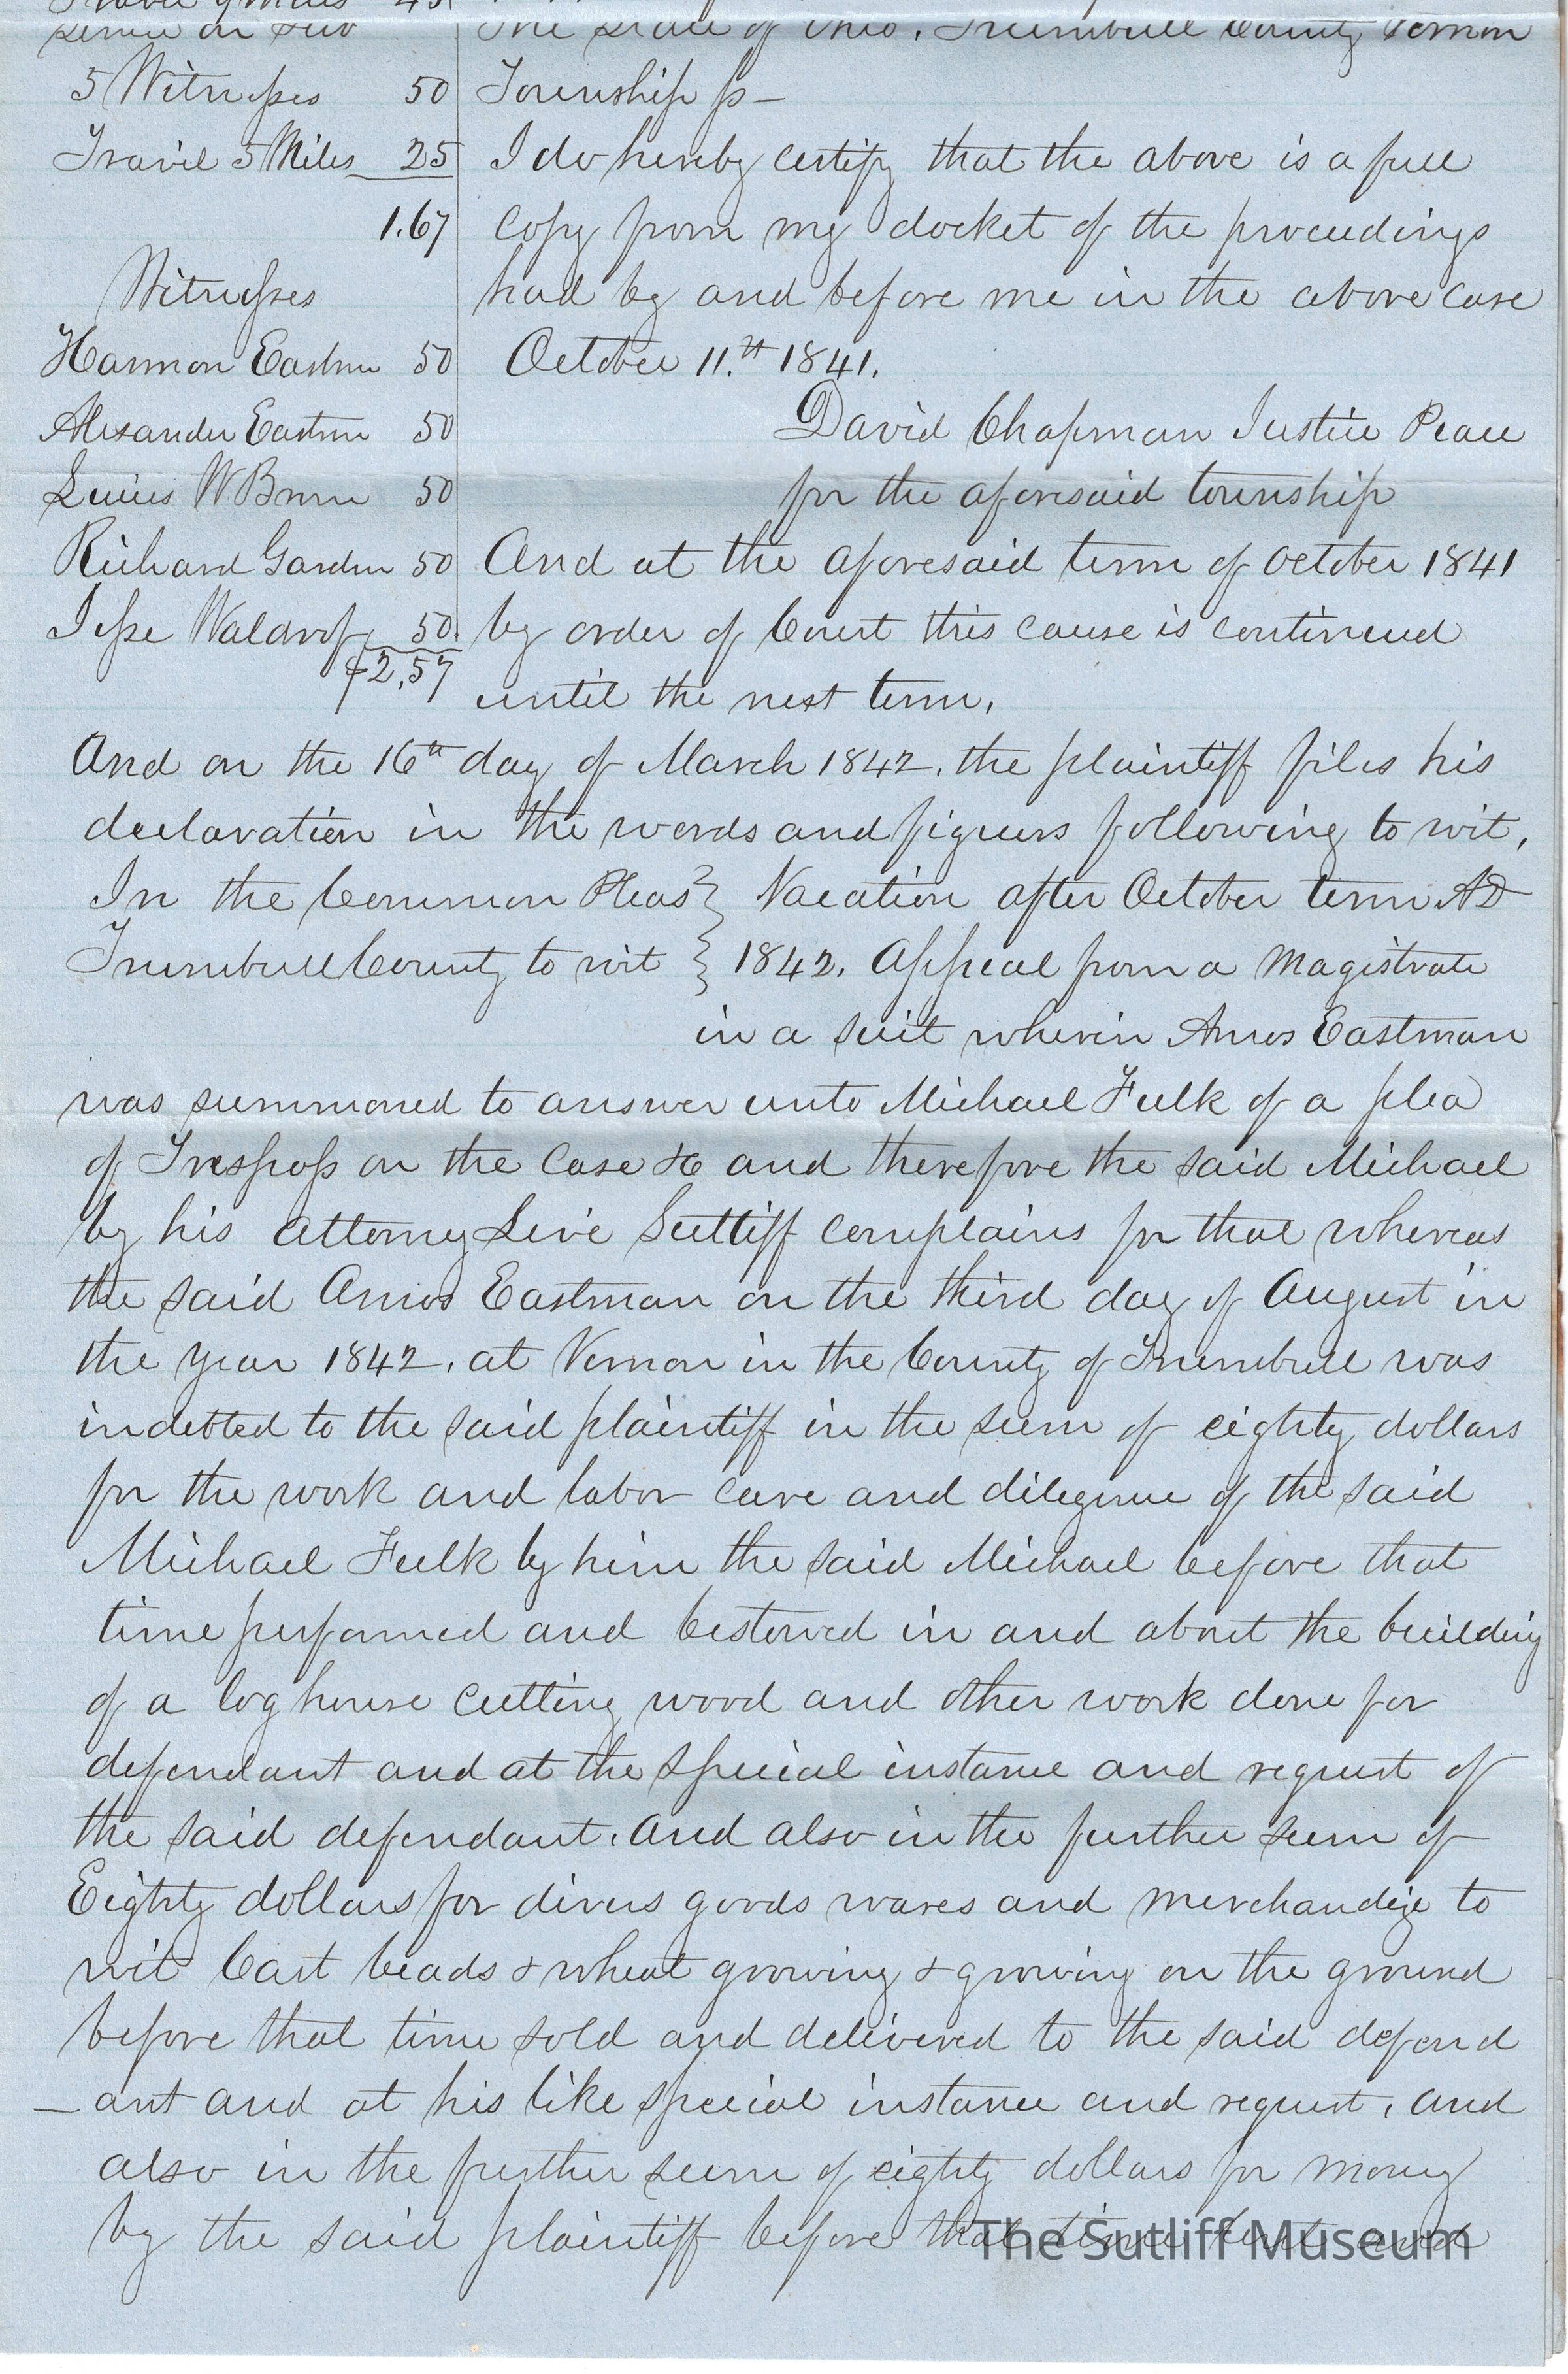 Travel 9 Miles 45
service on Sub The State of Ohio, Trumbull County Vernon
5 Witnesses 50 Township ss—
Travil 5 Miles 25 I do hereby certify that the above is a full
1.67 copy from my docket of the proceedings
Witnesses had by and before me in the above case
Harmon Eastmn 50 October 11.th 1841.
Alexander Eastmn 50 David Chapman Justice Peace
W. 50 for the aforesaid township
Richard Gardnr 50 And at the aforesaid term of October 1841
Jesse Waldrof 50 by order of Court this cause is continued
$2,57 until the next term,
And on the 16th day of March 1842. the plaintiff files his
declaration in the words and figuers following to wit,
In the Common Pleas } Vacation after October term AD
Trumbull County to wit } 1842. Appeal from a Magistrate
in a suit wherein Amos Eastman
was summoned to answer unto Michael Fulk of a plea
of Trespass on the Case &c and therefore the said Michael
by his attorney Levi Sutliff complains for that whereas
the said Amos Eastman on the third day of August in
the year 1842. at Vernon in the County of Trumbull was
indebted to the said plaintiff in the sum of eighty dollars
for the work and labor care and diligence of the said
Michael Fulk by him the said Michael before that
time performed and bestowed in and about the building
of a log house cutting wood and other work done for
defendant and at the special instance and request of
the said defendant, and also in the further sum of
Eighty dollars for divers goods wares and merchandize to
wit Cast beads & wheat growing & growing on the ground
before that time sold and delivered to the said defend
—ant and at his like special instance and request, and
also in the further sum of eighty dollars for money
by the said plaintiff before that time lent and
The Sutliff Museum